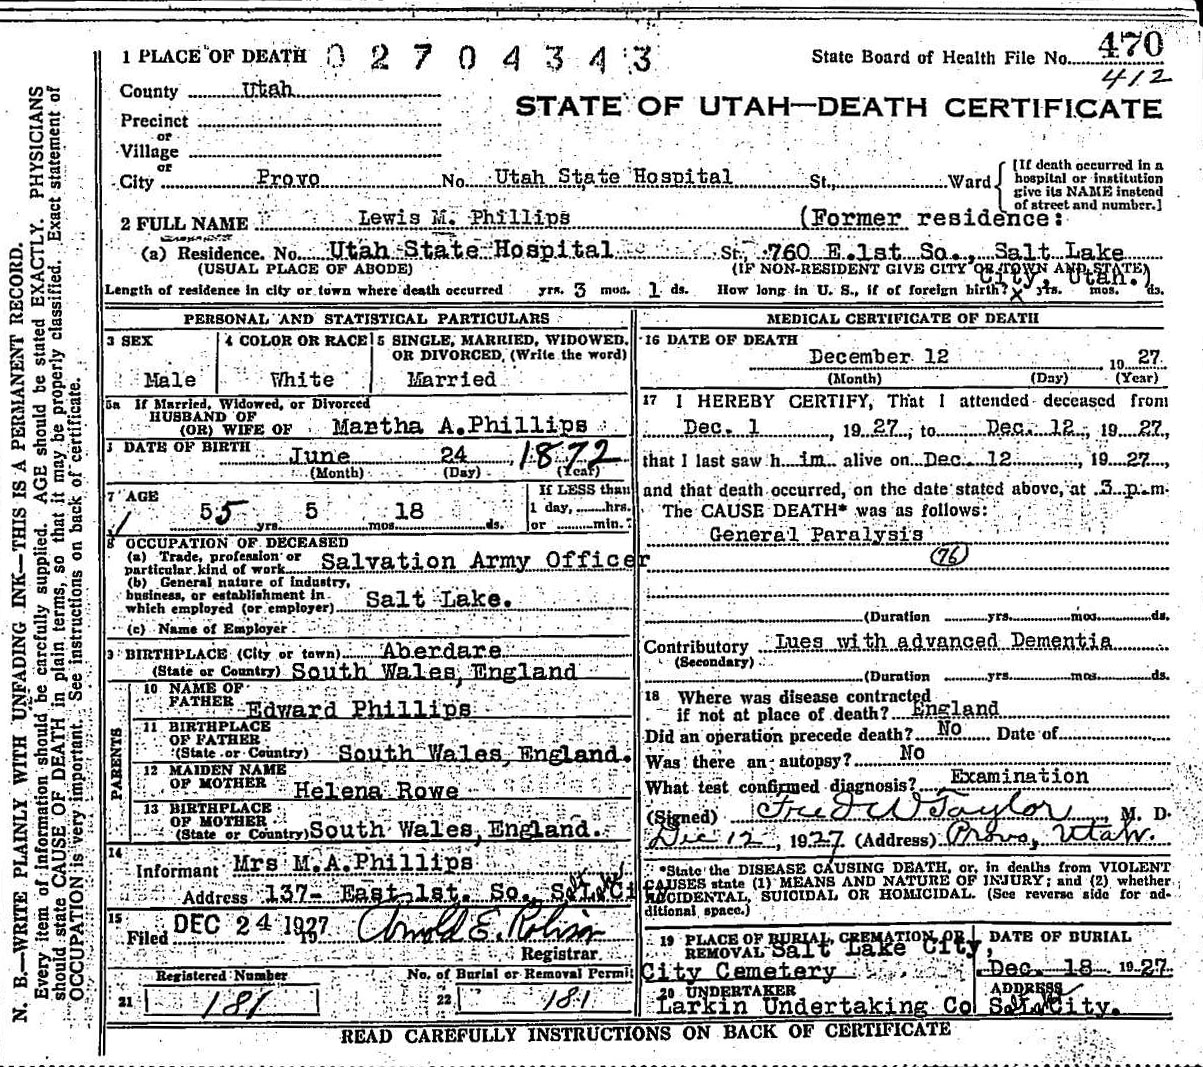 1 PLACE OF DEATH 02704343 State Board of Health File No. 470
412
County Utah
STATE OF UTAH—DEATH CERTIFICATE
Precinct
or
Village
or
City Provo No. Utah State Hospital St., Ward
[If death occurred in a
hospital or institution
give its NAME instead
of street and number.]
2 FULL NAME Lewis M. Phillips (Former residence:
(a) Residence. No. Utah State Hospital St., 760 E.1st So., Salt Lake
(USUAL PLACE OF ABODE) (IF NON-RESIDENT GIVE CITY OR TOWN AND STATE)
City, Utah.)
Length of residence in city or town where death occurred yrs. 3 mos. 1 ds. How long in U. S., if of foreign birth? x yrs. mos. ds.
PERSONAL AND STATISTICAL PARTICULARS
3 SEX 4 COLOR OR RACE 5 SINGLE, MARRIED, WIDOWED,
OR DIVORCED, (Write the word)
Male White Married
5a If Married, Widowed, or Divorced
HUSBAND OF
(OR) WIFE OF Martha A.Phillips
DATE OF BIRTH June 24, 1872
(Month) (Day) (Year)
7 AGE If LESS than
55 yrs. 5 mos. 18 ds. 1 day, hrs.
1 or min.?
8 OCCUPATION OF DECEASED
(a) Trade, profession or
particular kind of work Salvation Army Officer
(b) General nature of industry,
business, or establishment in
which employed (or employer) Salt Lake.
(c) Name of Employer
9 BIRTHPLACE (City or town) Aberdare
(State or Country) South Wales, England
PARENTS
10 NAME OF
FATHER Edward Phillips
11 BIRTHPLACE
OF FATHER
(State or Country) South Wales, England.
12 MAIDEN NAME
OF MOTHER Helena Rowe
13 BIRTHPLACE
OF MOTHER
(State or Country) South Wales, England.
14
Informant Mrs M.A.Phillips
Address 137- East 1st. So. Salt Lake Ci
15 Filed DEC 24 1927 19 Arnold E. Robison
Registrar
Registered Number No. of Burial or Removal Permit
21 181 22 181
MEDICAL CERTIFICATE OF DEATH
16 DATE OF DEATH
December 12 19 27
(Month) (Day) (Year)
17 I HEREBY CERTIFY, That I attended deceased from
Dec. 1, 19 27, to Dec. 12, 19 27,
that I last saw h im alive on Dec. 12, 19 27,
and that death occurred, on the date stated above, at 3 p.m.
The CAUSE DEATH* was as follows:
General Paralysis
(76)
(Duration yrs. mos. ds.
Contributory Lues with advanced Dementia
(Secondary)
(Duration yrs. mos. ds.
18 Where was disease contracted
if not at place of death? England
Did an operation precede death? No Date of
Was there an autopsy? No
What test confirmed diagnosis? Examination
(Signed) Fred W Taylor, M. D.
Dec 12, 1927 (Address) Provo, Utah.
*State the DISEASE CAUSING DEATH, or, in deaths from VIOLENT
CAUSES state (1) MEANS AND NATURE OF INJURY; and (2) whether
ACCIDENTAL, SUICIDAL OR HOMICIDAL. (See reverse side for ad-
ditional space.)
19 PLACE OF BURIAL, CREMATION OR
REMOVAL Salt Lake City,
City Cemetery
DATE OF BURIAL
Dec. 18 19 27
20 UNDERTAKER
Larkin Undertaking Co
ADDRESS
Salt Lake City.
READ CAREFULLY INSTRUCTIONS ON BACK OF CERTIFICATE
N. B.—WRITE PLAINLY WITH UNFADING INK—THIS IS A PERMANENT RECORD.
Every item of information should be carefully supplied. AGE should be stated EXACTLY. PHYSICIANS
should state CAUSE OF DEATH in plain terms, so that it may be properly classified. Exact statement of
OCCUPATION is very important. See instructions on back of certificate.